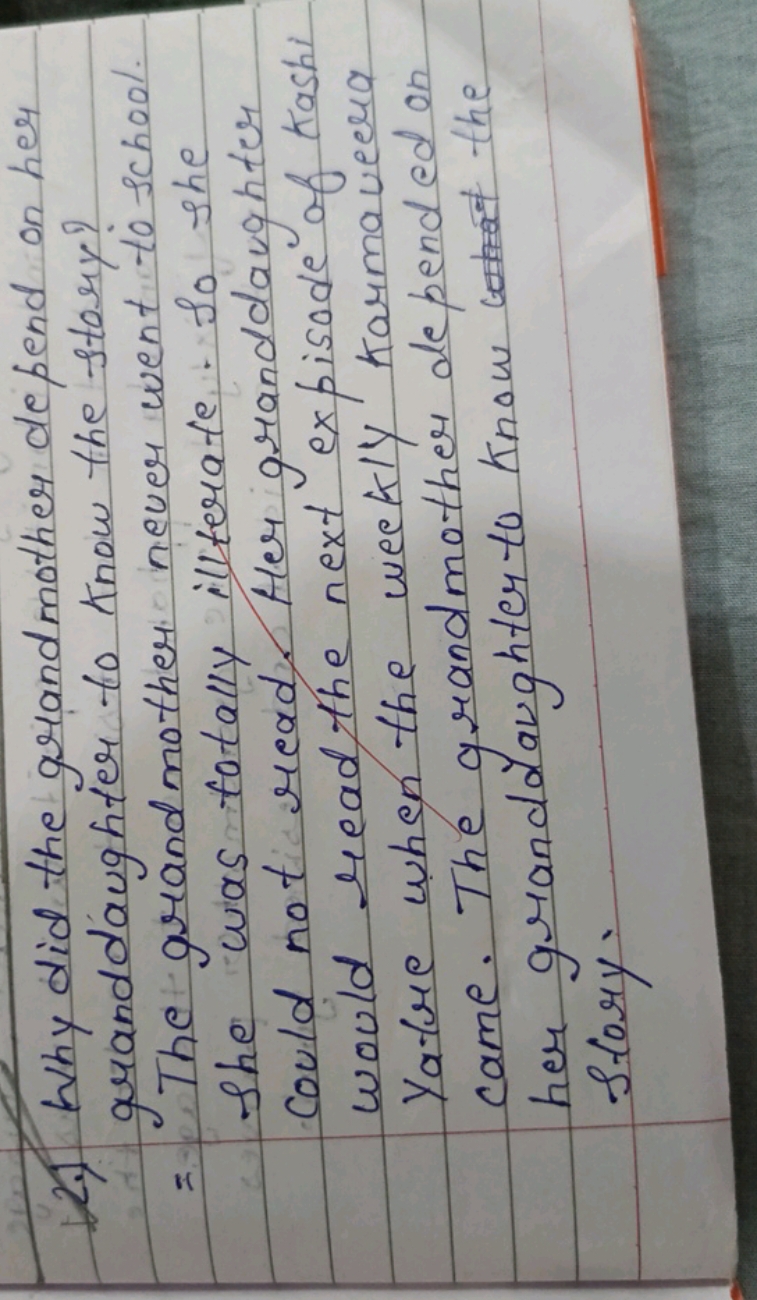 2) Why did the grandmother depend on her
granddaughter to know the story?
= The grandmother never went to school.
She was totally illterate. So she
could not read. Her granddaughter
would read the next expisode of Kashi
Yatre when the weekly Karmaveera
came. The grandmother depended on
her granddaughter to know what the
story.